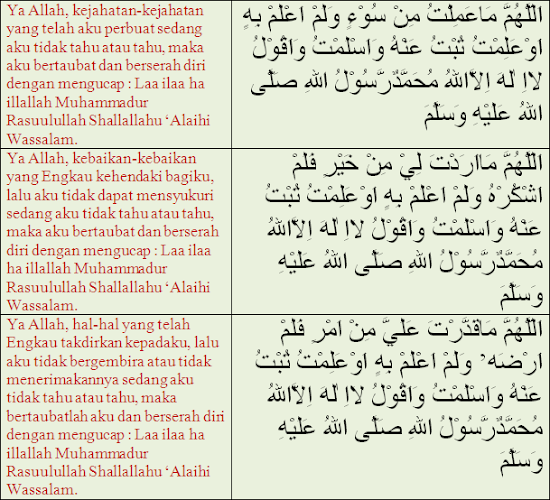 Ya Allah, kejahatan-kejahatan
yang telah aku perbuat sedang
aku tidak tahu atau tahu, maka
aku bertaubat dan berserah diri
dengan mengucap : Laa ilaa ha
illallah Muhammadur
Rasuulullah Shallallahu ‘Alaihi
Wassalam.
اَللّٰهُمَّ مَاعَمِلْتُ مِنْ سُوْءٍ وَلَمْ اَعْلَمْ بِهِ
اَوْعَلِمْتُ تُبْتُ عَنْهُ وَاَسْلَمْتُ وَاَقُوْلُ
لَااِلٰهَ اِلَّااللهُ مُحَمَّدٌرَّسُوْلُ اللهِ صَلَّى
اللهُ عَلَيْهِ وَسَلَّمَ
Ya Allah, kebaikan-kebaikan
yang Engkau kehendaki bagiku,
lalu aku tidak dapat mensyukuri
sedang aku tidak tahu atau tahu,
maka aku bertaubat dan berserah
diri dengan mengucap : Laa ilaa
ha illallah Muhammadur
Rasuulullah Shallallahu ‘Alaihi
Wassalam.
اَللّٰهُمَّ مَااَرَدْتَ لِيْ مِنْ خَيْرٍ فَلَمْ
اَشْكُرْهُ وَلَمْ اَعْلَمْ بِهِ اَوْعَلِمْتُ تُبْتُ
عَنْهُ وَاَسْلَمْتُ وَاَقُوْلُ لَااِلٰهَ اِلَّااللهُ
مُحَمَّدٌرَّسُوْلُ اللهِ صَلَّى اللهُ عَلَيْهِ
وَسَلَّمَ
Ya Allah, hal-hal yang telah
Engkau takdirkan kepadaku, lalu
aku tidak bergembira atau tidak
menerimakannya sedang aku
tidak tahu atau tahu, maka
bertaubatlah aku dan berserah diri
dengan mengucap : Laa ilaa ha
illallah Muhammadur
Rasuulullah Shallallahu ‘Alaihi
Wassalam.
اَللّٰهُمَّ مَاقَدَّرْتَ عَلَيَّ مِنْ اَمْرٍ فَلَمْ
اَرْضَهُ’ وَلَمْ اَعْلَمْ بِهِ اَوْعَلِمْتُ تُبْتُ
عَنْهُ وَاَسْلَمْتُ وَاَقُوْلُ لَااِلٰهَ اِلَّااللهُ
مُحَمَّدٌرَّسُوْلُ اللهِ صَلَّى اللهُ عَلَيْهِ
وَسَلَّمَ